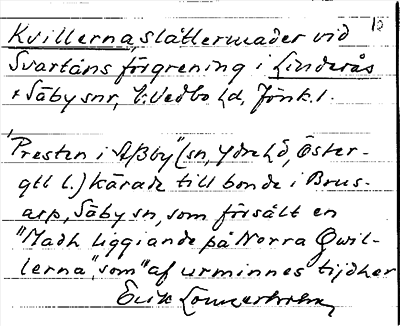 12
Kvillerna, slåttermader vid
Svartåns förgrening i Linderås
+ Säby snr, N:Vedbo hd, Jönk. l.
"Presten i Aßby" (sn, Ydre hd, Öster-
gtl l.) kärade till bonde i Brus-
arp, Säby sn, som försålt en
"Madh liggiande på Norra Qwil-
lerna", som "af urminnes tijdher
Erik